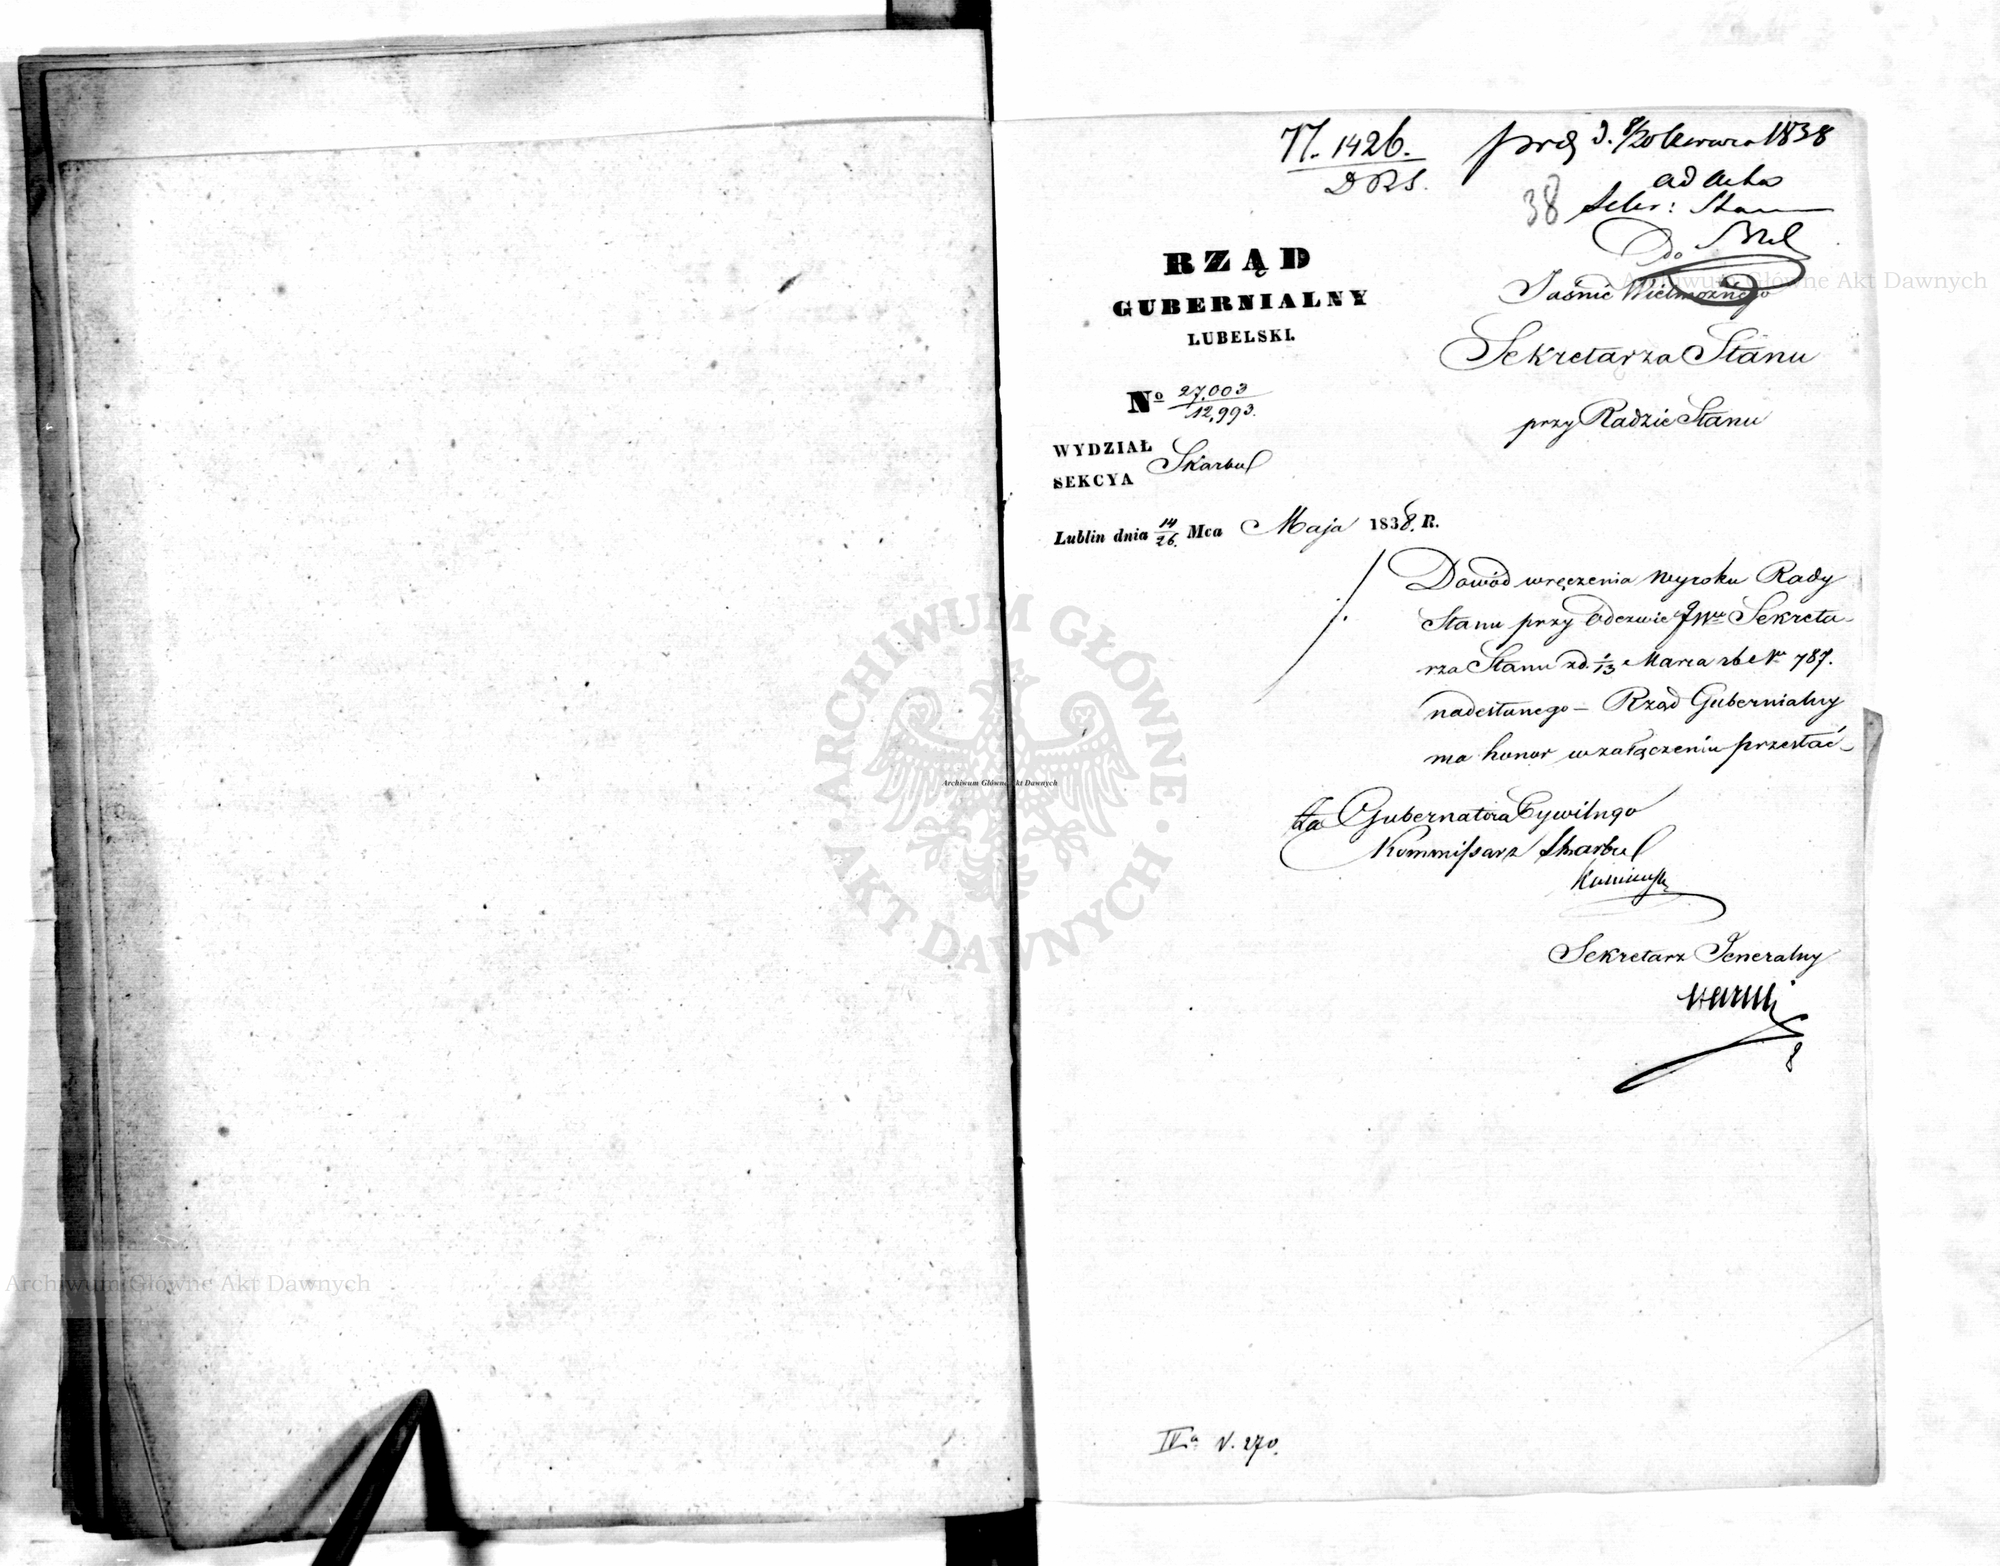 N. 1426.
D R S.
d. 8/20 Czerwca 1838
ad acta
Sekr: Stanu
38
RZĄD
GUBERNIALNY
LUBELSKI.
No 27,003/12,993.
WYDZIAŁ
SEKCYA
Skarbu
Lublin dnia 14/26. Mca Maja 1838. R.
Do
Jaśnie Wielmożnego
Sekretarza Stanu
przy Radzie Stanu
Dowód wręczenia wyroku Rady
Stanu przy Odezwie JWo Sekreta-
rza Stanu z d. 1/13 Marca rb No 787.
nadesłanego — Rząd Gubernialny
ma honor w załączeniu przesłać —
Za Gubernatora Cywilngo
Kommissarz Skarbu
Sekretarz Jeneralny
IVa N. 270.
Archiwum Główne Akt Dawnych
Archiwum Główne Akt Dawnych
Archiwum Główne Akt Dawnych
ARCHIWUM GŁÓWNE
AKT DAWNYCH